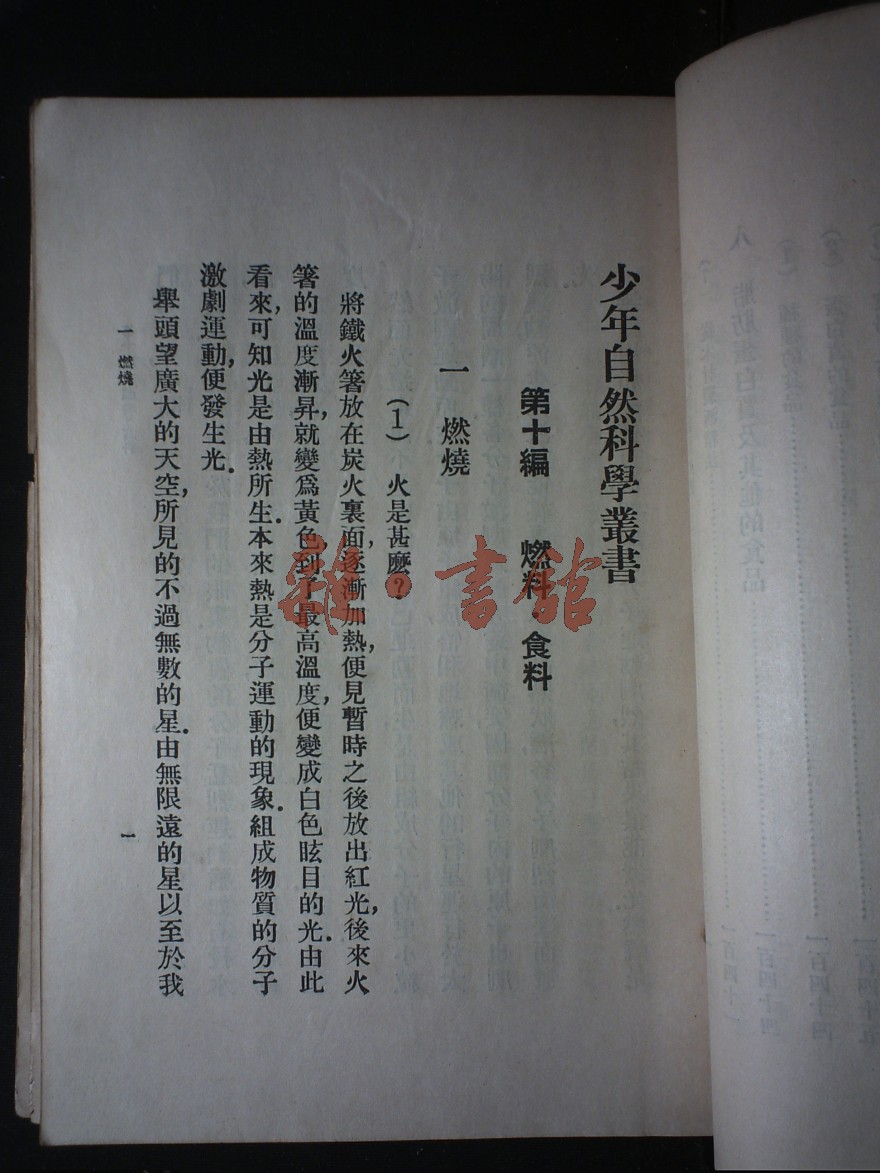 少年自然科學叢書
第十編　燃料・食料
一　燃燒
(1)　火是甚麽?
將鐵火箸放在炭火裏面,逐漸加熱,便見暫時之後放出紅光,後來火
箸的溫度漸昇,就變爲黃色,到了最高溫度,便變成白色眩目的光.由此
看來,可知光是由熱所生.本來熱是分子運動的現象.組成物質的分子
激劇運動,便發生光.
舉頭望廣大的天空,所見的不過無數的星.由無限遠的星以至於我
一　燃燒
一
雜・書館